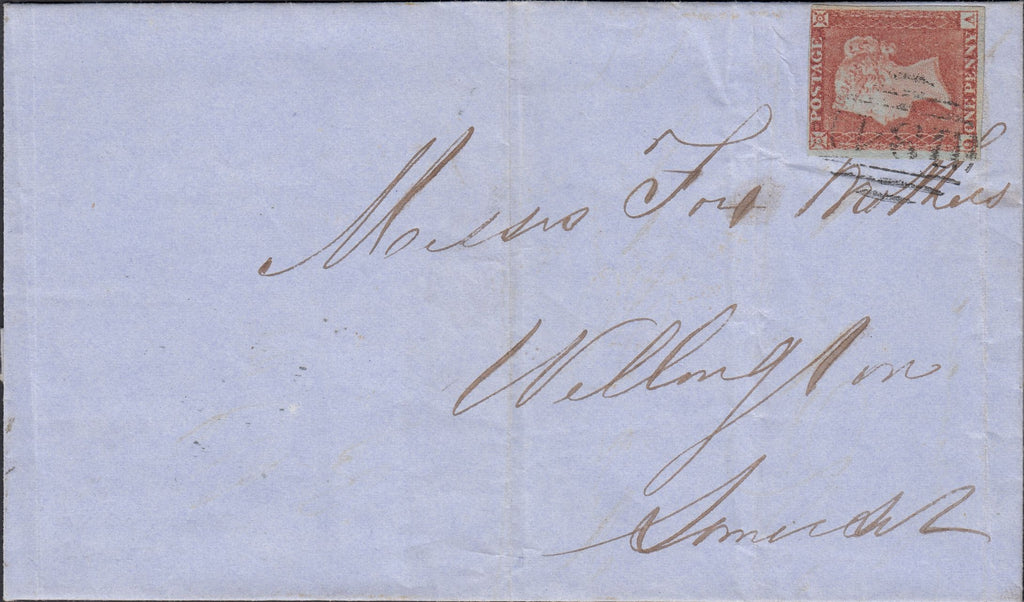 POSTAGE
ONE PENNY
A
Messrs Fox Brothers
Wellington
Somerset